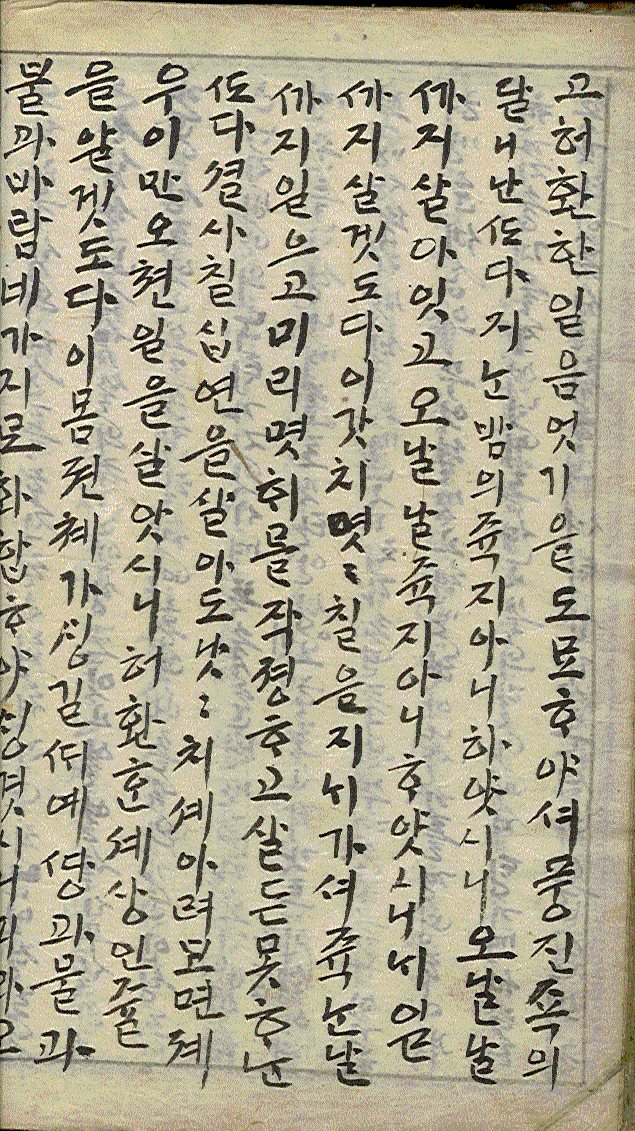 고허환한일음엇기을도모ᄒᆞ야셔풍진쇽의
달ᄂᆡ난ᄯᅩ다지ᄂᆞᆫ밤의쥭지아니하얏시니오날날
ᄭᅡ지살아잇고오날날쥭지아니ᄒᆞ얏시니ᄂᆡ일
ᄭᅡ지살겟도다이갓치몃〻칠을지ᄂᆡ가셔쥭ᄂᆞᆫ날
ᄭᅡ지일으고미리몃ᄒᆡ를작졍ᄒᆞ고살든못ᄒᆞᄂᆞᆫ
ᄯᅩ다셜사칠십연을살아도낫〻치셰아려보면계
우이만오쳔일을살앗시니허환ᄒᆞᆫ셰상인쥴
을알겟도다이몸편쳬가ᄉᆡᆼ길ᄯᅢ예ᄯᅡᆼ과물과
불과바람네가지로화합ᄒᆞ야ᄉᆡᆼ겻시니